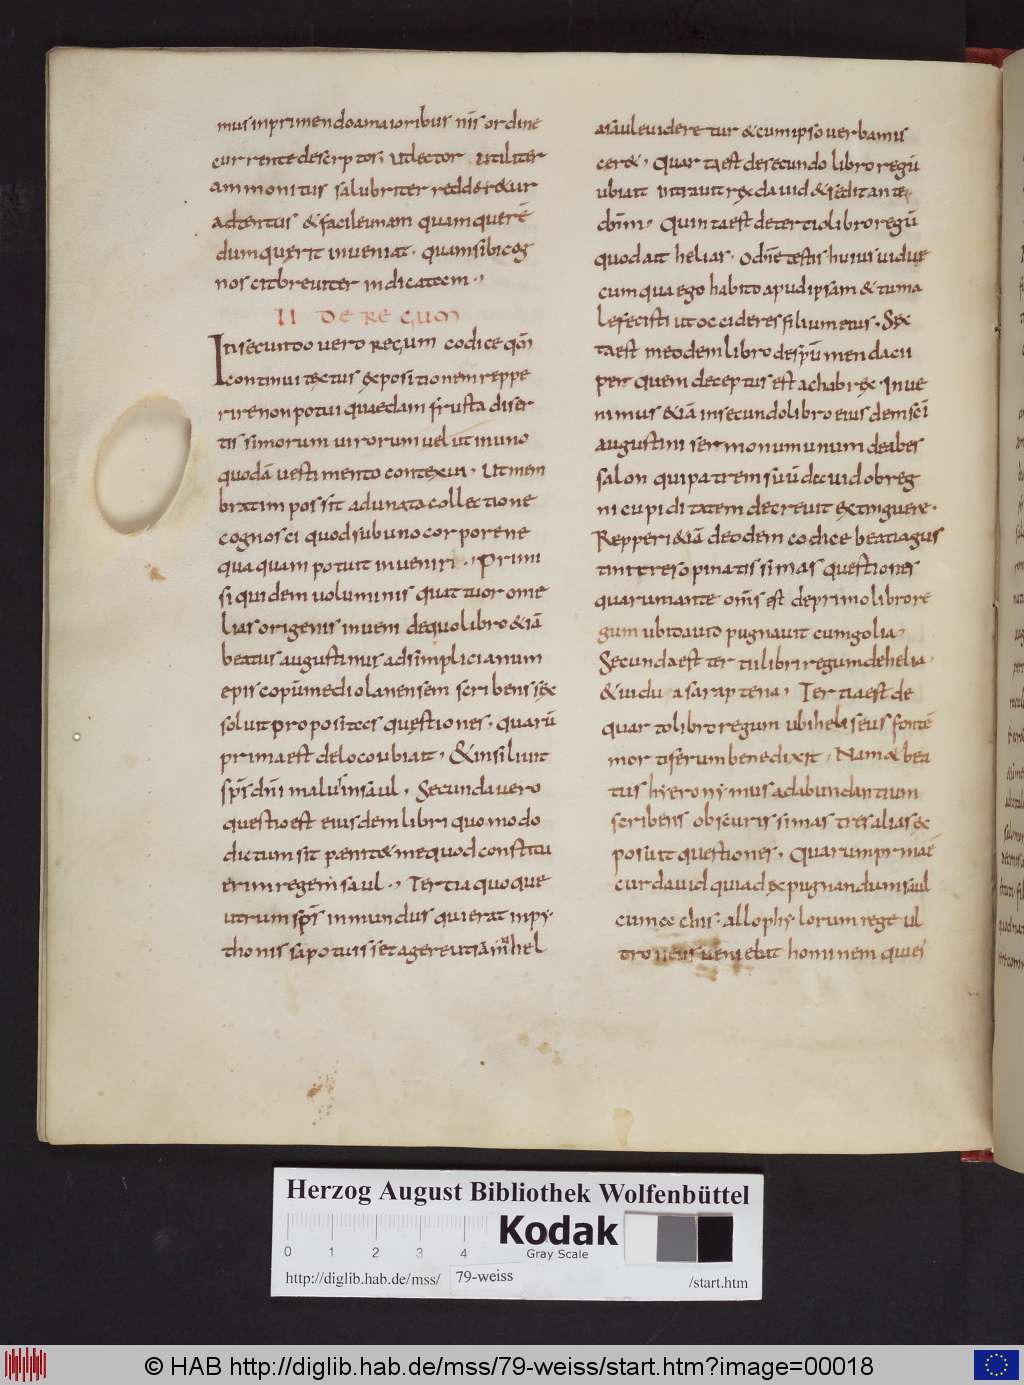 mus inprimendo a maioribus nr̄is ordine
currente descriptos, ut lector utiliter
ammonitus salubriter reddetur
adtentus & facile unam quam querē
dum querit inveniat · quam sibi cog
noscit breviter indicatam ·,
II DE REGUM
In secundo vero regum codice qm̄
continui textus expositionem reppe
rire non potui quaedam frusta diser
tissimorum virorum velut in uno
quodā vestimento contexui · Ut mem
bratim possit adunata collectione
cognosci quod sub uno corpore ne
quaquam potuit inveniri ·, Primi
siquidem voluminis quattuor ome
lias origenis inveni de quo libro &iā
beatus augustinus ad simplicianum
episcopū mediolanensem scribens sex
solvit propositas questiones · quarū
prima est de loco ubi ait · & insiluit
sp̄s dn̄i malus in saul · Secunda vero
questio est eiusdem libri quomodo
dictum sit paenit& me quod constitu
erim regem saul ·, Tertia quoque
utrum sp̄s inmundus qui erat in py
thonissa potuisset agere ut iam̄uhel
a saule videretur & cum ipso verba mis
cer& · Quarta est de secundo libro regū
ubi ait intravit rex david & sedit ante
dn̄m · Quinta est de tertio libro regū
quod ait helias · O dn̄e testis huius vidue
cum qua ego habito apud ipsam & tu ma
le fecisti ut occideres filium eius · Sex
ta est in eodem libro de sp̄u mendacii
per quem deceptus est achab rex · Inve
nimus &iā in secundo libro eiusdem sc̄i
augustini sermonum unum de abes
salon qui patrem suū david ob reg
ni cupiditatem decrevit extinguere ·
Repperi &iā de eodem codice beati agus
tini tres opinatissimas questiones
quarum ante om̄s est de primo libro re
gum ubi david pugnavit cum golia ·
Secunda est tertii libri regum de helia
& vidua saraptena · Tertia est de
quarto libro regum ubi helaseus fontē
mortiferum benedixit · Nam & bea
tus hyeronymus ad abundantium
scribens obscurissimas tres alias ex
posuit questiones · Quarum prima ē
cur david qui ad expugnandum saul
cum acchis · allophylorum rege ul
troneus veniebat hominem qui ei
Herzog August Bibliothek Wolfenbüttel
0 1 2 3 4
Kodak
Gray Scale
http://diglib.hab.de/mss/ 79-weiss /start.htm
© HAB http://diglib.hab.de/mss/79-weiss/start.htm?image=00018